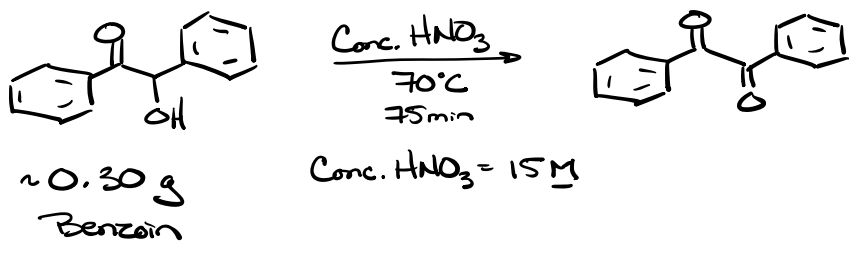 O
OH
Conc. HNO3
70°C
75min
O
O
~ 0.30 g
Benzoin
Conc. HNO3 = 15 M